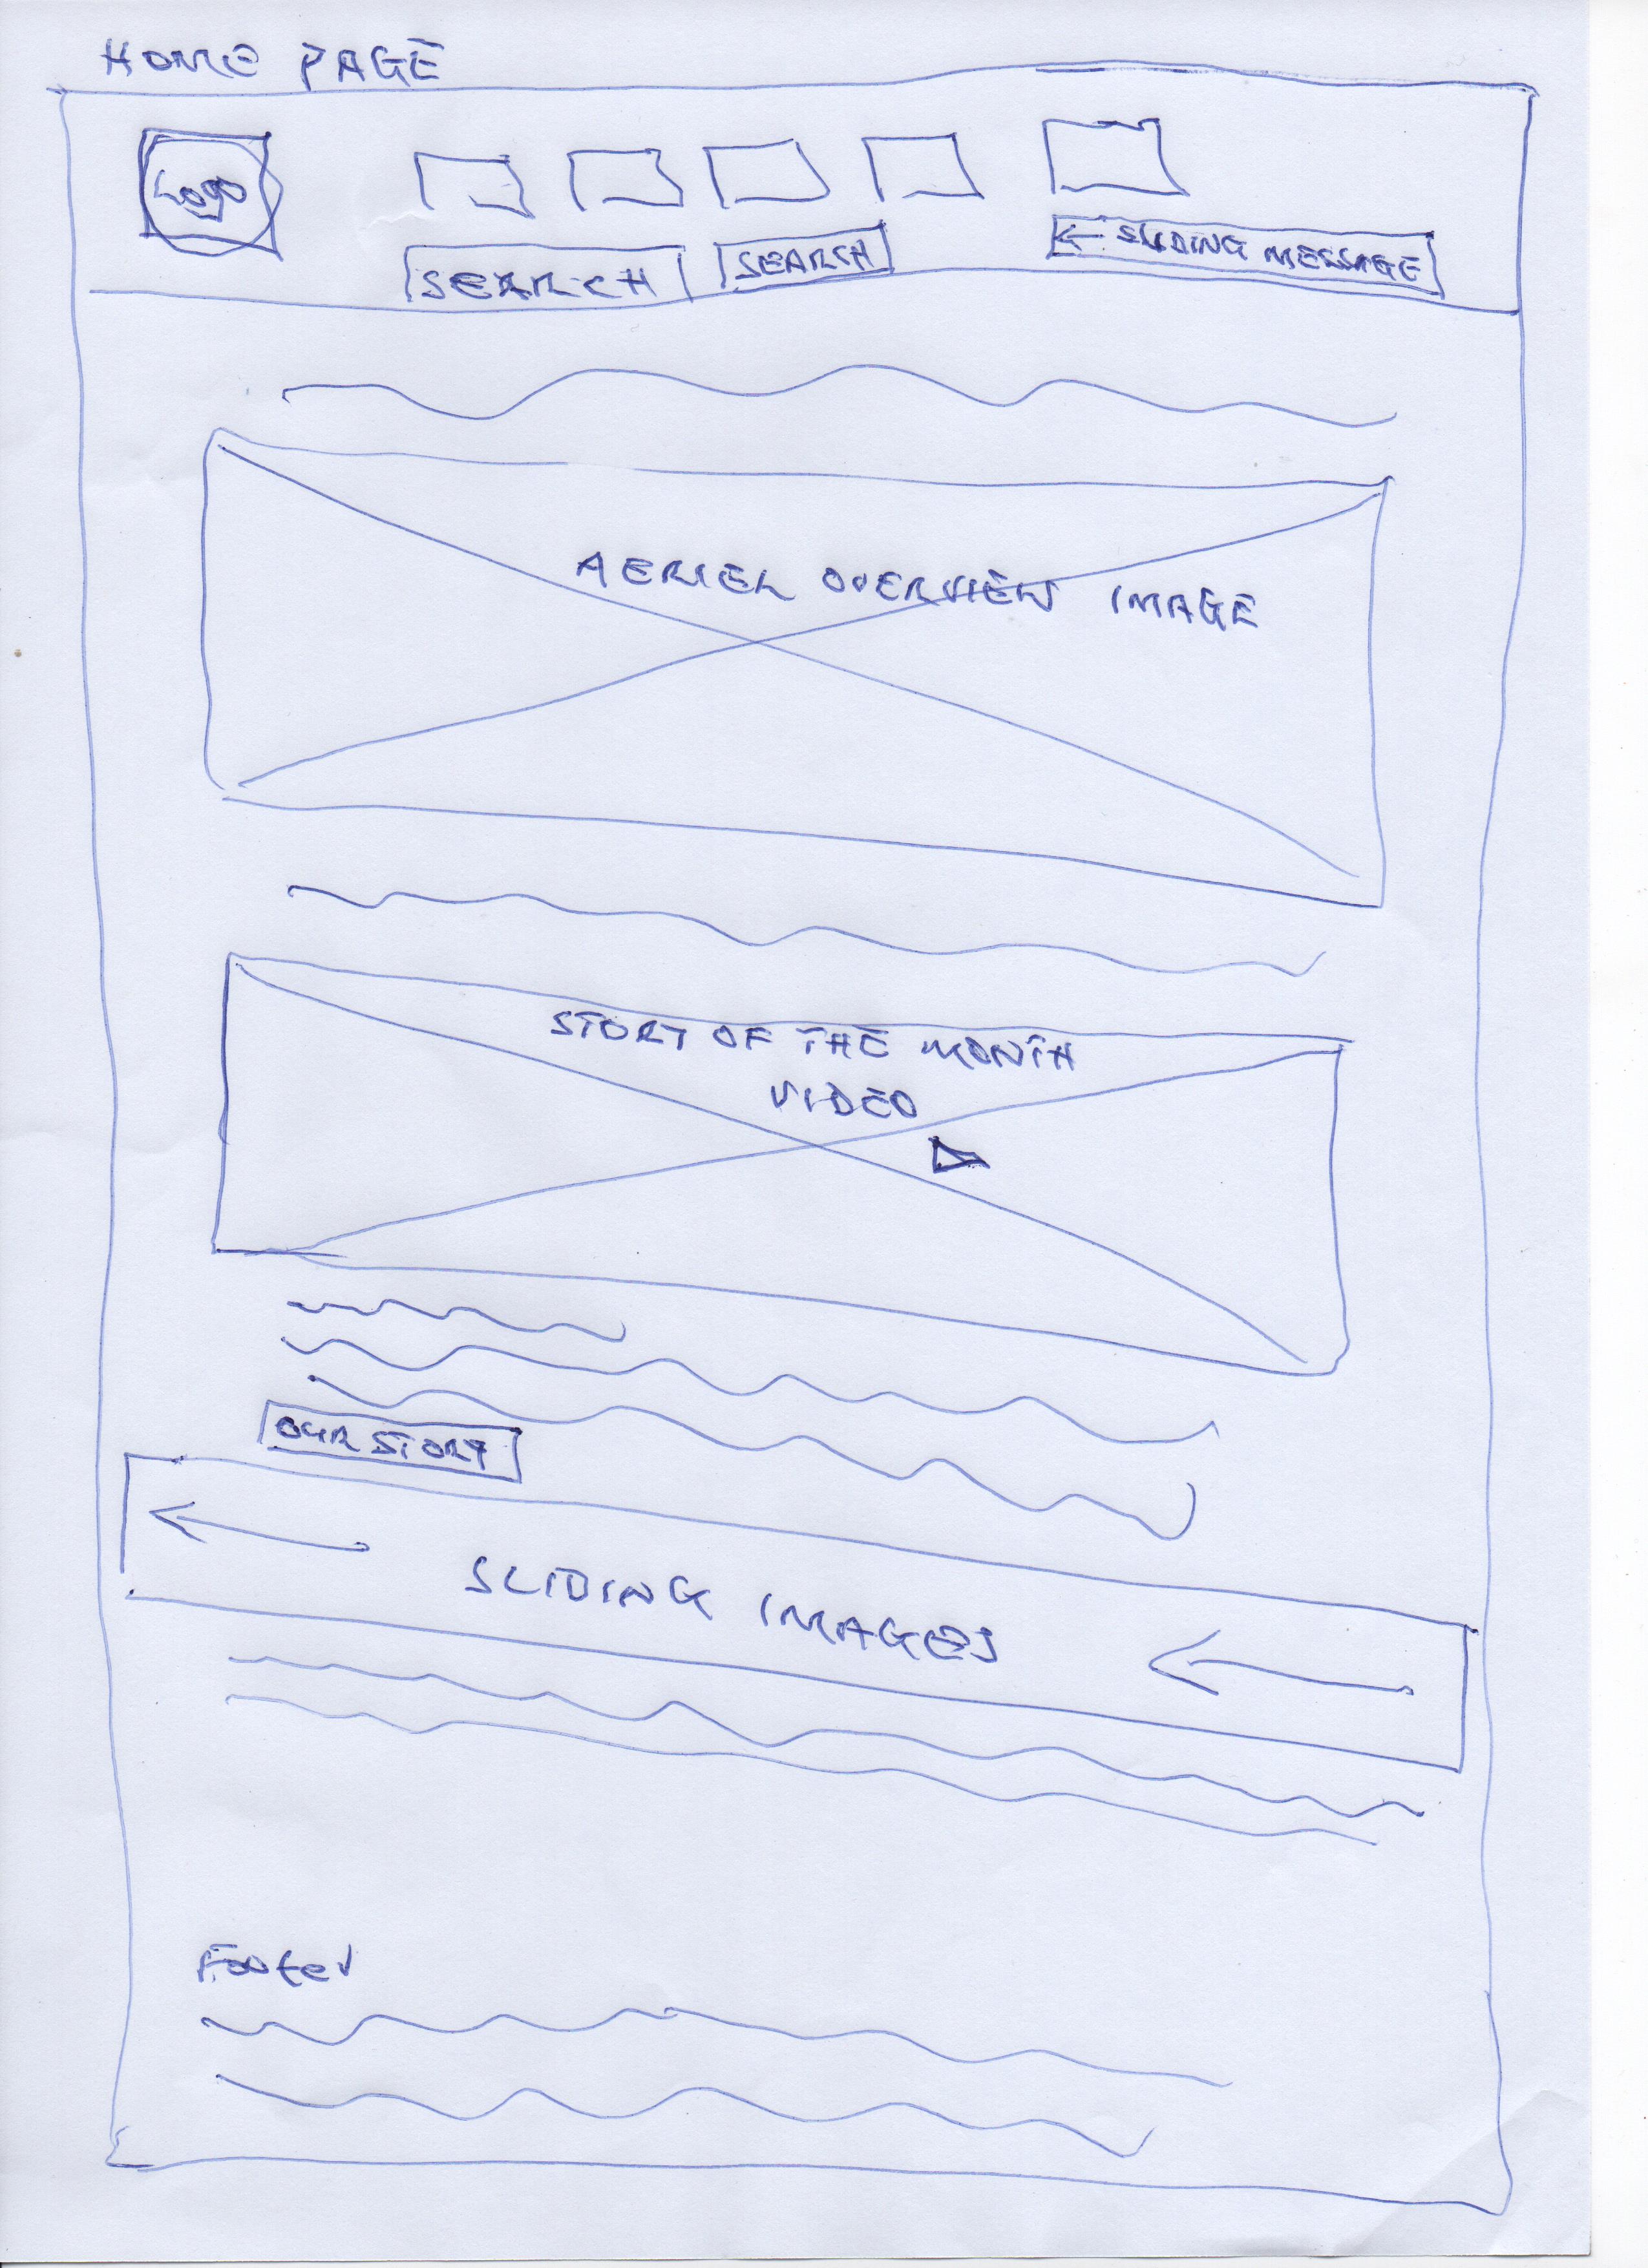 HOME PAGE
Logo
SEARCH
SEARCH
SLIDING MESSAGE
AERIEL OVERVIEW IMAGE
STORY OF THE MONTH
VIDEO
OUR STORY
SLIDING IMAGES
Footer